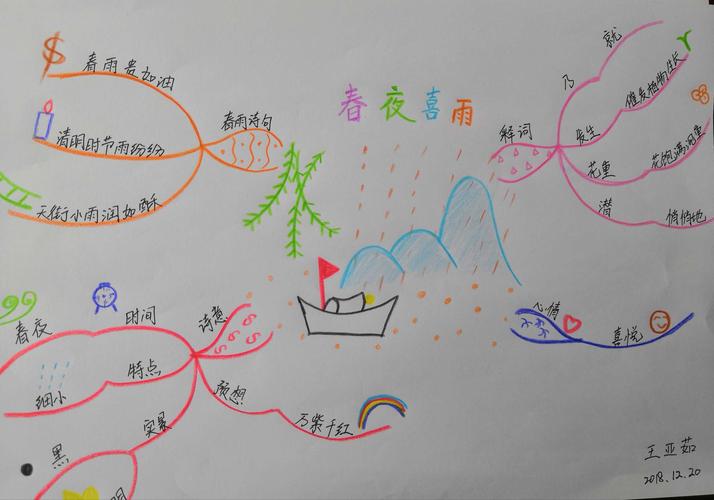 春夜喜雨
春雨诗句
春雨贵如油
清明时节雨纷纷
天街小雨润如酥
解词
乃
就
发生
催发植物生长
花重
花饱满沉重
潜
悄悄地
心情
喜悦
诗意
时间
春夜
特点
细小
实景
黑
明
预想
万紫千红
王亚茹
2018.12.20